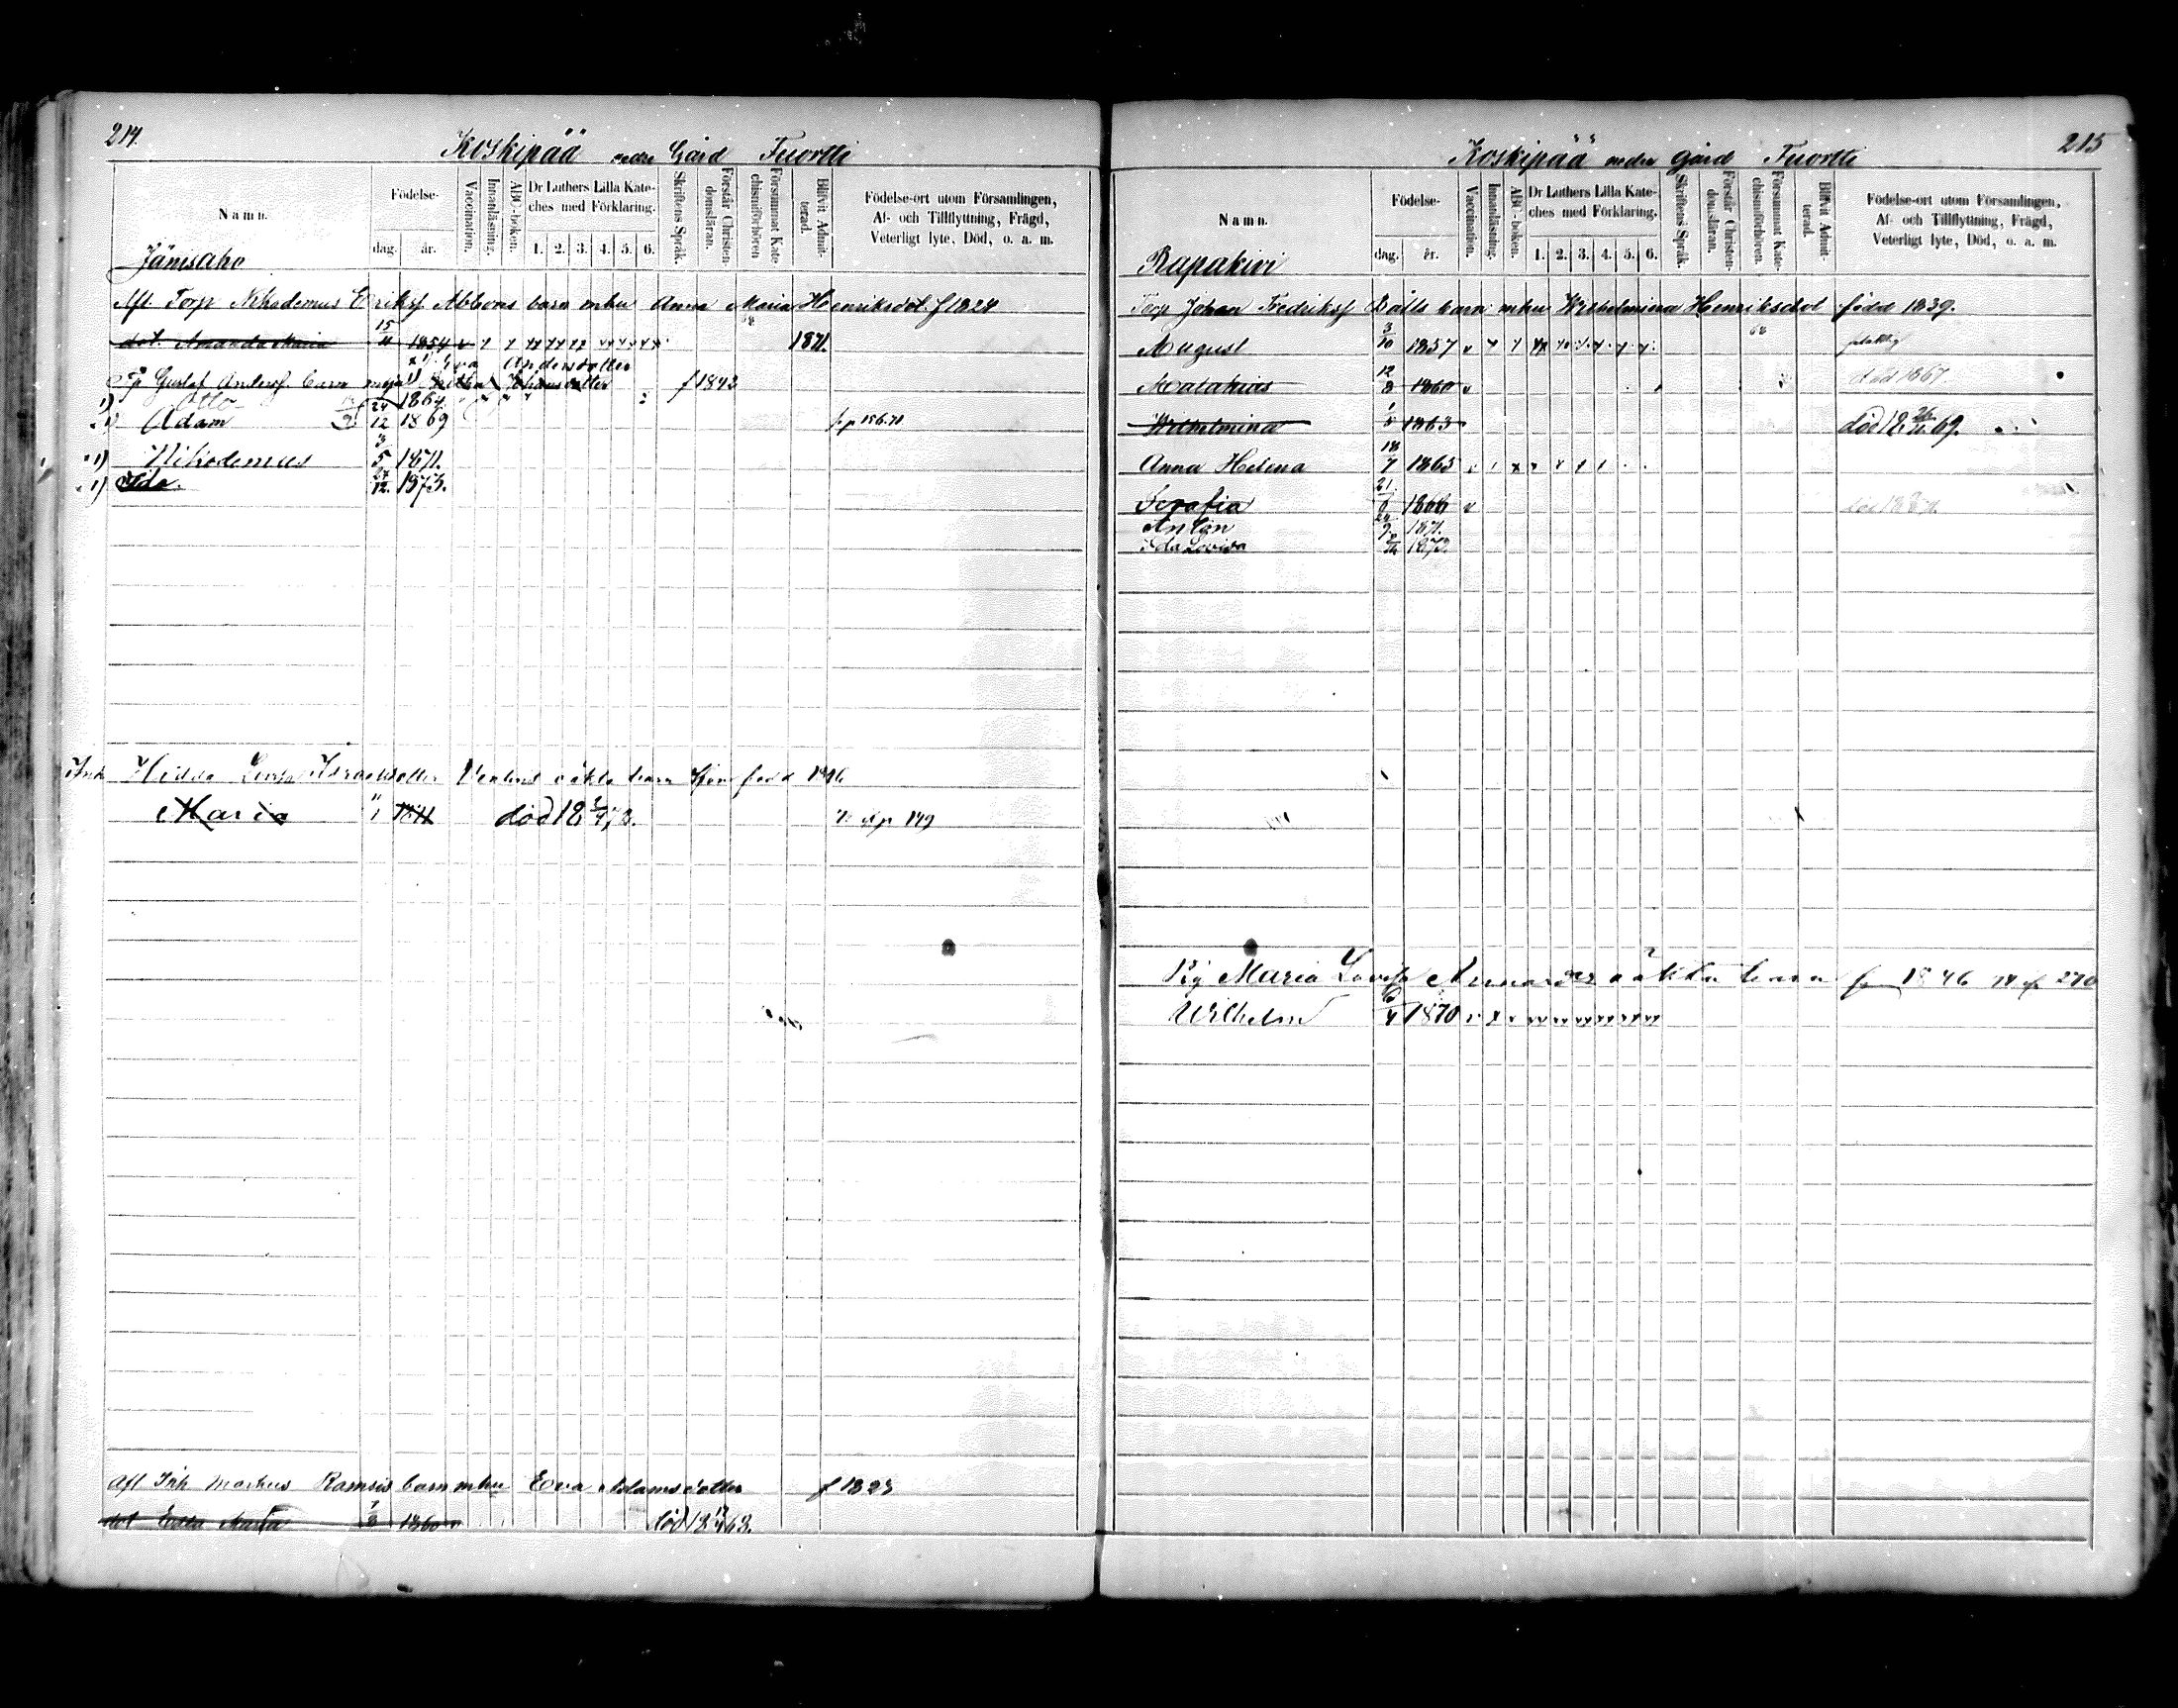 214.
Koskipää nedre Gård Tuortti
Namn.
Födelse-
dag.
år.
Vaccination.
Innanläsning.
ABC-boken.
Dr Luthers Lilla Kate-
ches med Förklaring.
1. 2. 3. 4. 5. 6.
Skriftens Språk.
Förstår Christen-
domsläran.
Försummat Kate-
chismiförhören
Blifvit Admit-
terad.
Födelse-ort utom Församlingen,
Af- och Tillflyttning, Frägd,
Veterligt lyte, Död, o. a. m.
Jänisaho
Afl Torp Nikodemus Erikss Abbors barn mhu Anna Maria Henriksdot f 1824
dot. Amanda Maria 15/11 1854 1871.
Eva Andersdotter
Gustaf Anderss. barn f 1843
1) Otto 24 1864
1) Adam 12 1869
1) Nikodemus 3/5 1871.
1) Ida. 24/12. 1873.
Inh Hedda Lovisa Israelsdotter oäkta barn född
Maria död
149
Afl Inh Markus Ramsis barn mhu Eva Adamsdotter f 1823
dot Edla Maria 1860 död
215
Koskipää nedre gård Tuortti
Namn.
Födelse-
dag.
år.
Vaccination.
Innanläsning.
ABC-boken.
Dr Luthers Lilla Kate-
ches med Förklaring.
1. 2. 3. 4. 5. 6.
Skriftens Språk.
Förstår Christen-
domsläran.
Försummat Kate-
chismiförhören.
Blifvit Admit-
terad.
Födelse-ort utom Församlingen,
Af- och Tillflyttning, Frägd,
Veterligt lyte, Död, o. a. m.
Rapakivi
Torp Johan Fredrikss Balls barn mhu Wilhelmina Henriksdot född 1839.
August 3/10 1857
Matathias 12/8 1860 död 1867
Wilhelmina 1/5 1863 död 18 26/11 69.
Anna Helena 18/7 1865
Serafia 21/6 1868
Anton 24/9 1871.
Ida Lovisa 1873.
Pig Maria Lovisa oäkta barn f 1846 270
Wilhelm 6/4 1870